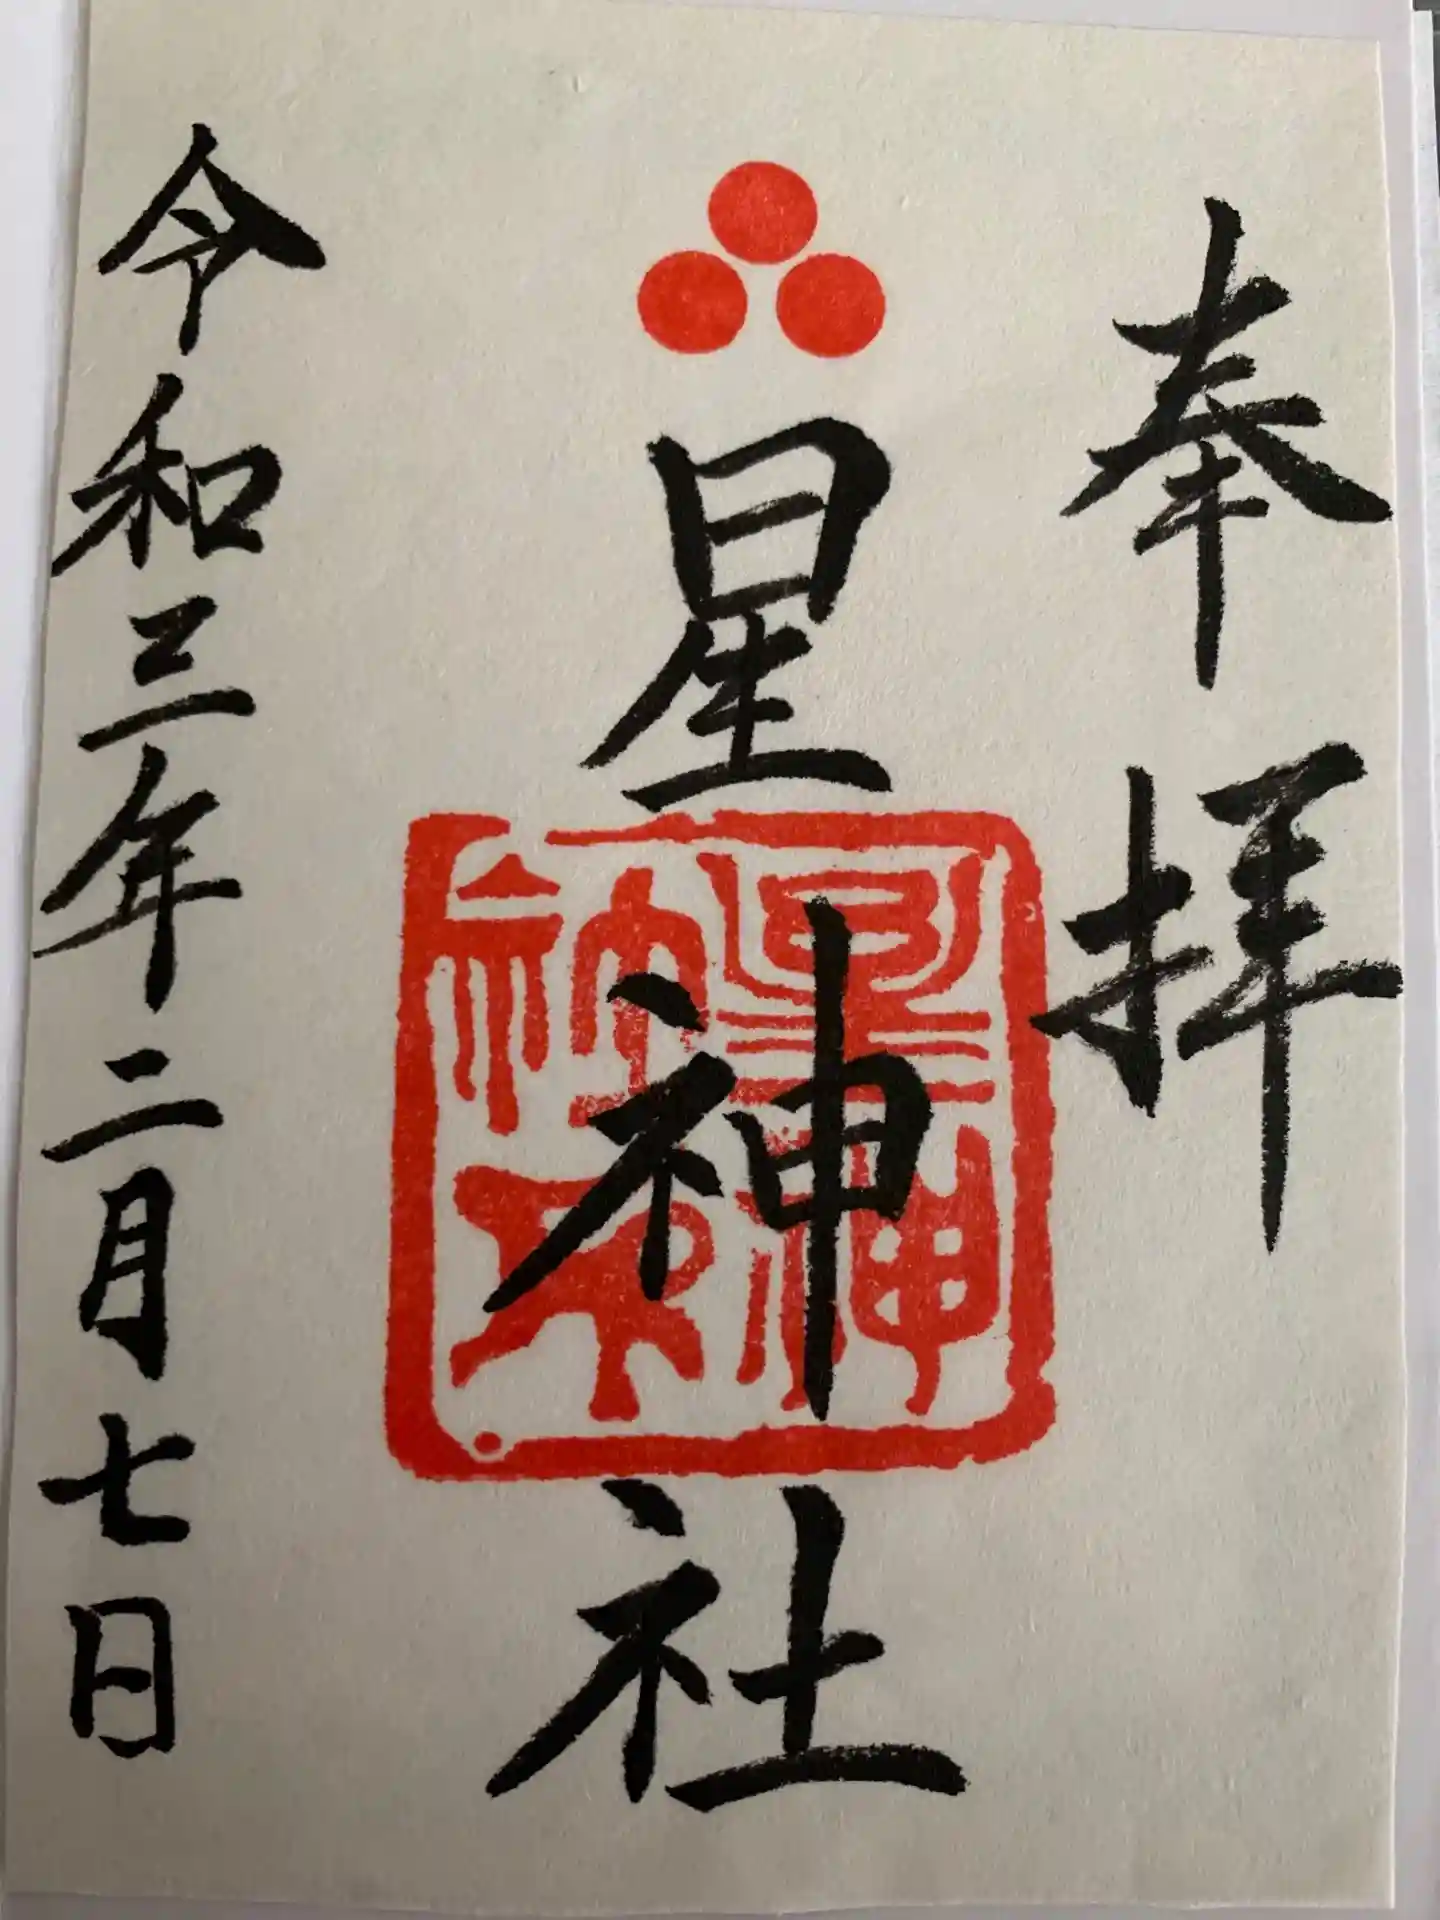 奉拝
星神社
令和三年二月七日